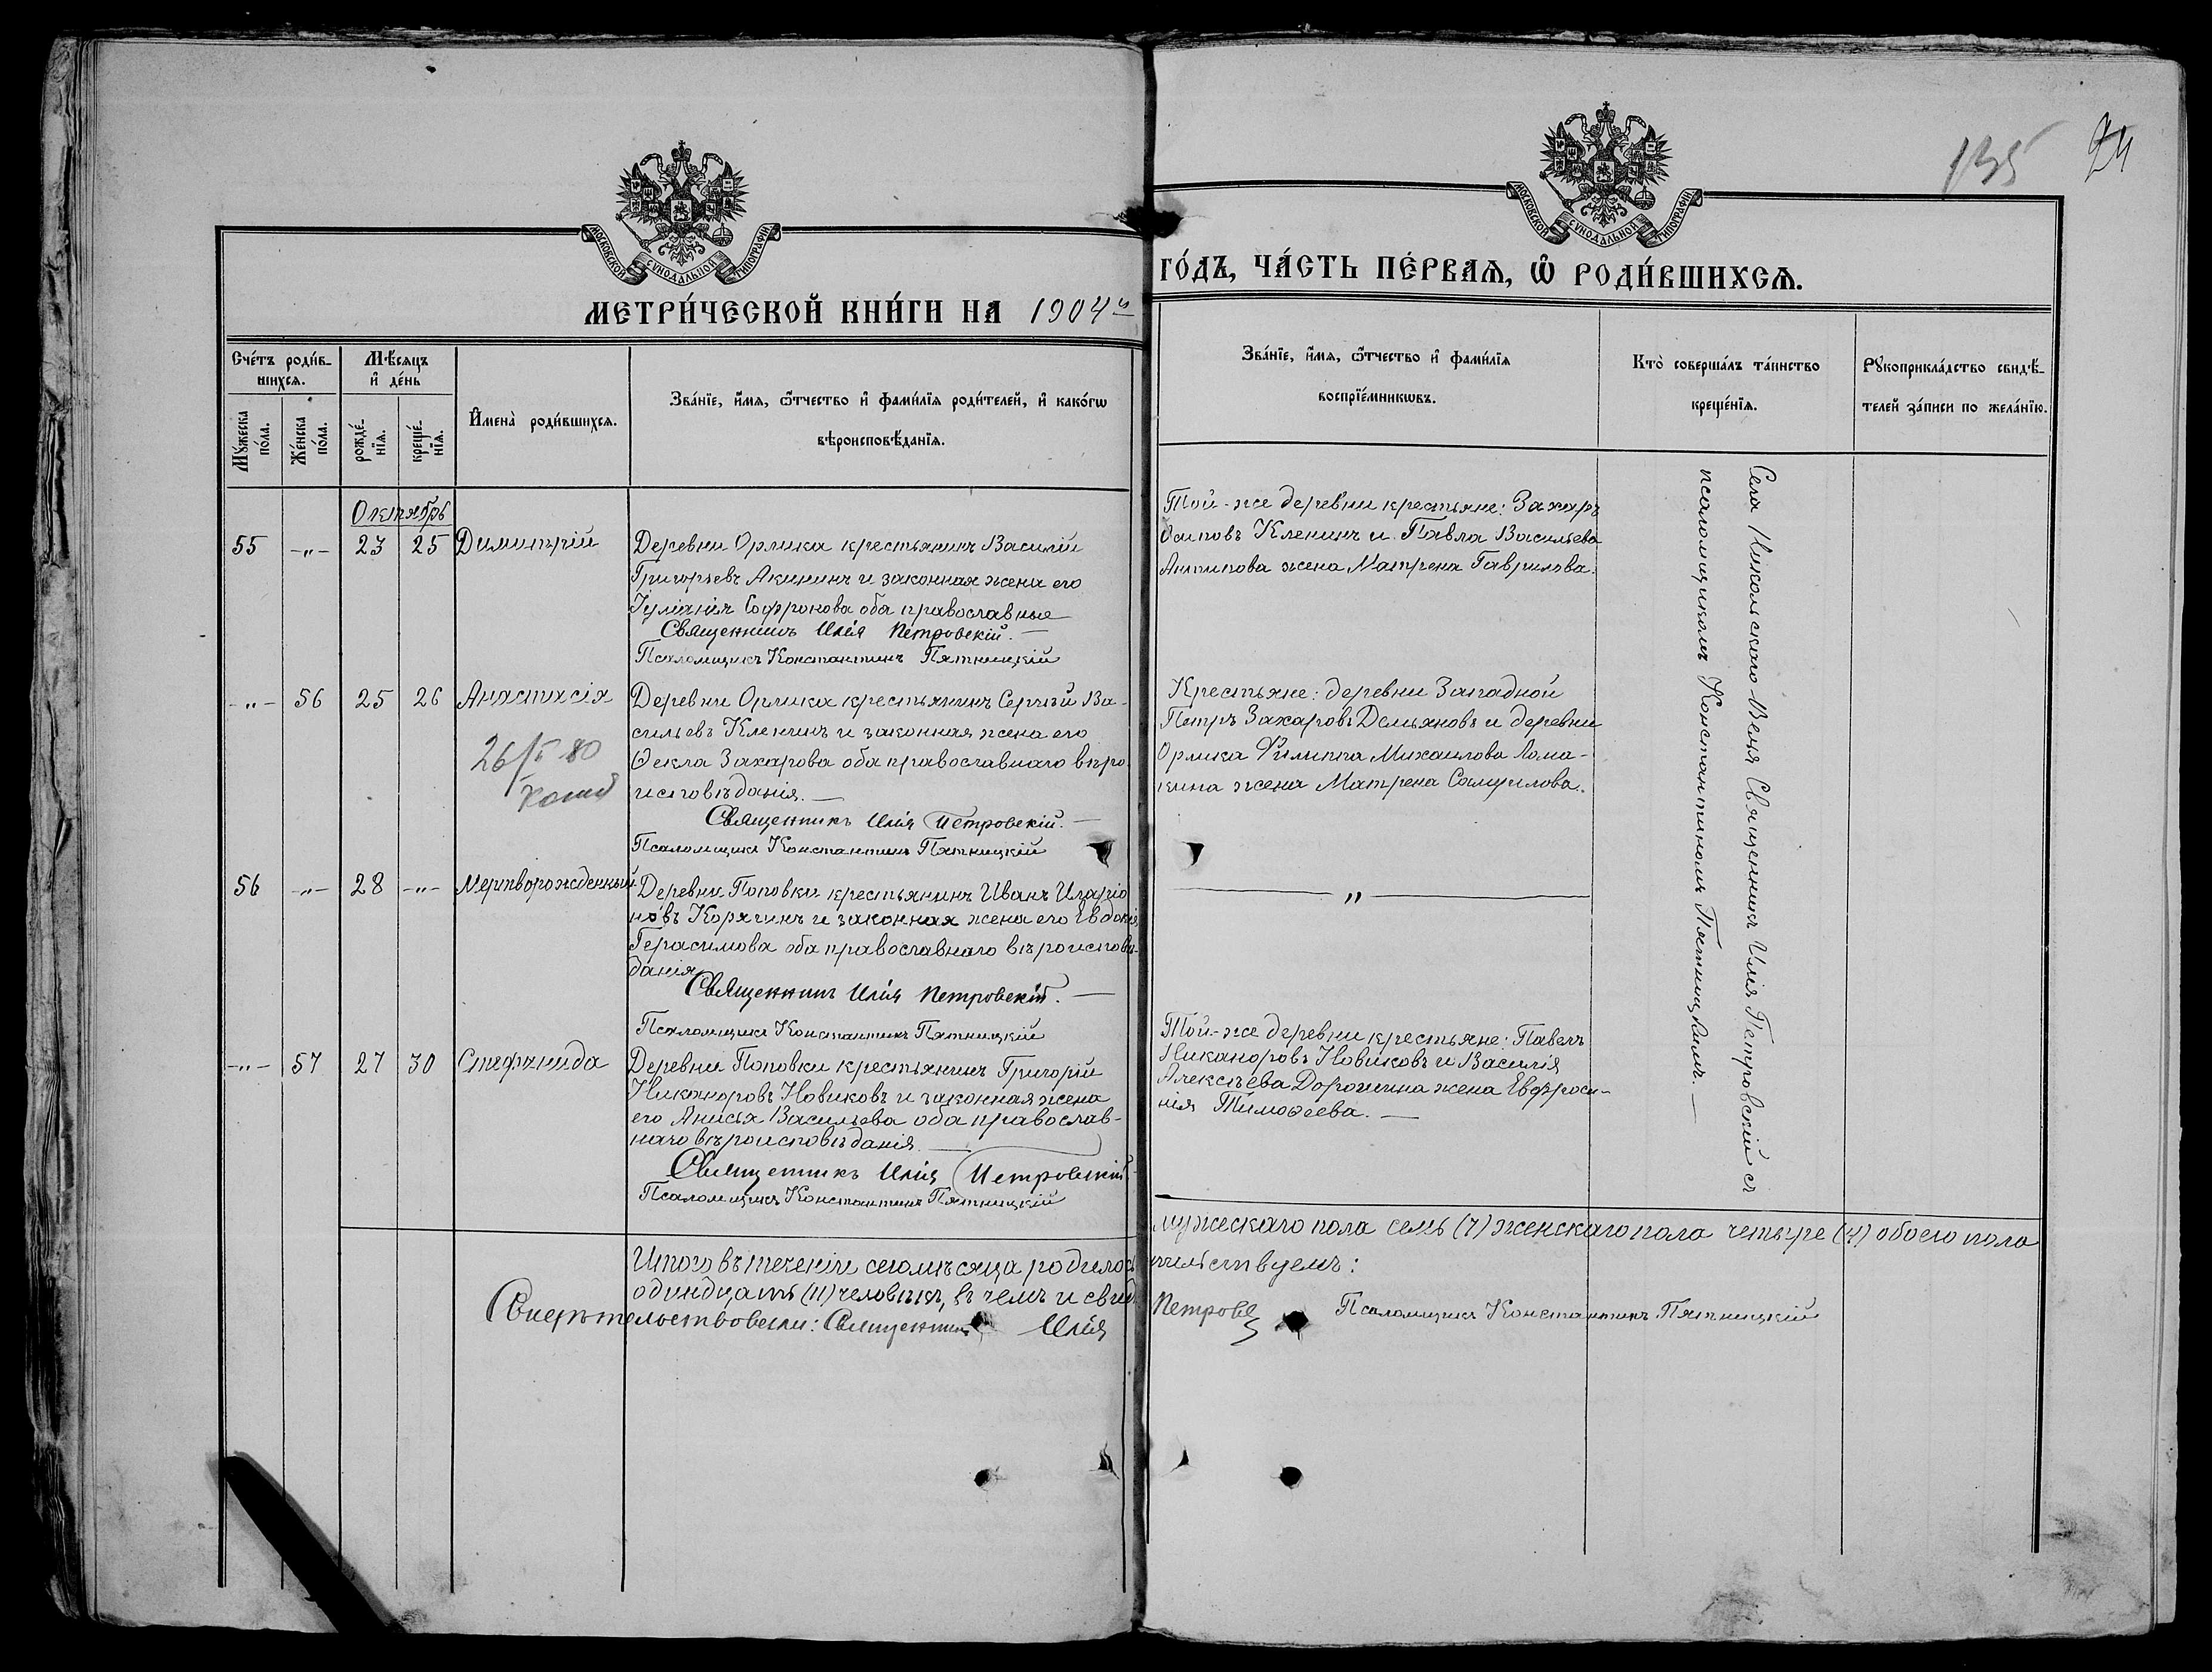 135
МОСКОВСКОЙ СѴНОДАЛЬНОЙ ТИПОГРАФІИ
МОСКОВСКОЙ СѴНОДАЛЬНОЙ ТИПОГРАФІИ
МЕТРИ́ЧЕСКОЙ КНИ́ГИ НА 1904й
ГО́ДЪ, ЧА́СТЬ ПЕ́РВАѦ, Ѡ҆ РОДИ́ВШИХСѦ.
Сче́тъ роди́в-
шихсѧ.
Мꙋ́жеска по́ла.
Же́нска по́ла.
Мѣ́сѧцъ
и҆ де́нь
рожде́-
нїѧ.
креще́-
нїѧ.
И҆мена̀ роди́вшихсѧ.
Зва́нїе, и҆́мѧ, ѻ҆́тчество и҆ фами́лїѧ роди́телей, и҆ како́гѡ
вѣроисповѣ́данїѧ.
Зва́нїе, и҆́мѧ, ѻ҆́тчество и҆ фами́лїѧ
воспрїе́мникѡвъ.
Кто̀ соверша́лъ та́инство
креще́нїѧ.
Рꙋкоприкла́дство свидѣ́-
телей за́писи по жела́нїю.
Октябрь
55 -"- 23 25 Димитрій
Деревни Орлика крестьянинъ Василій
Григорьевъ Акининъ и законная жена его
Іуліанія Софронова оба православные
Священникъ Илія Петровскій.
Псаломщикъ Константинъ Пятницкій
Той-же деревни крестьяне: Захаръ
Осиповъ Кленинъ и Павла Васильева
Антипова жена Матрена Гаврилова.
-"- 56 25 26 Анастасія
26/I 80
Деревни Орлика крестьянинъ Сергѣй Ва-
сильевъ Кленинъ и законная жена его
Ѳекла Захарова оба православнаго вѣро-
исповѣданія.
Священникъ Илія Петровскій.
Псаломщикъ Константинъ Пятницкій
Крестьяне: деревни Западной
Петръ Захаровъ Демьяновъ и деревни
Орлика Филиппа Михаилова Лома-
кина жена Матрена Самуилова.
56 -"- 28 -"- Мертворожденный
Деревни Поповки крестьянинъ Иванъ Иларіо
новъ Корягинъ и законная жена его Евдокія
Герасимова оба православнаго вѣроисповѣ-
данія
Священникъ Илія Петровскій.
Псаломщикъ Константинъ Пятницкій
"
-"- 57 27 30 Стефанида
Деревни Поповки крестьянинъ Григорій
Никаноровъ Новиковъ и законная жена
его Анисья Васильева оба православ-
наго вѣроисповѣданія
Священникъ Илія Петровскій
Псаломщикъ Константинъ Пятницкій
Той-же деревни крестьяне: Павелъ
Никаноровъ Новиковъ и Василія
Алексѣева Дорожкина жена Евфроси-
нія Тимоѳеева.
Села Никольского-Вешя Священникъ Илія Петровскій съ
псаломщикомъ Константиномъ Пятницкимъ.
Итого въ теченіи сего мѣсяца родилось
мужескаго пола семь (7) женскаго пола четыре (4) обоего пола
одиндцать (11) человѣкъ, въ чемъ и свидѣ
тельствуемъ:
Свидѣтельствовали: Священникъ Илія
Петровс
Псаломщикъ Константинъ Пятницкій